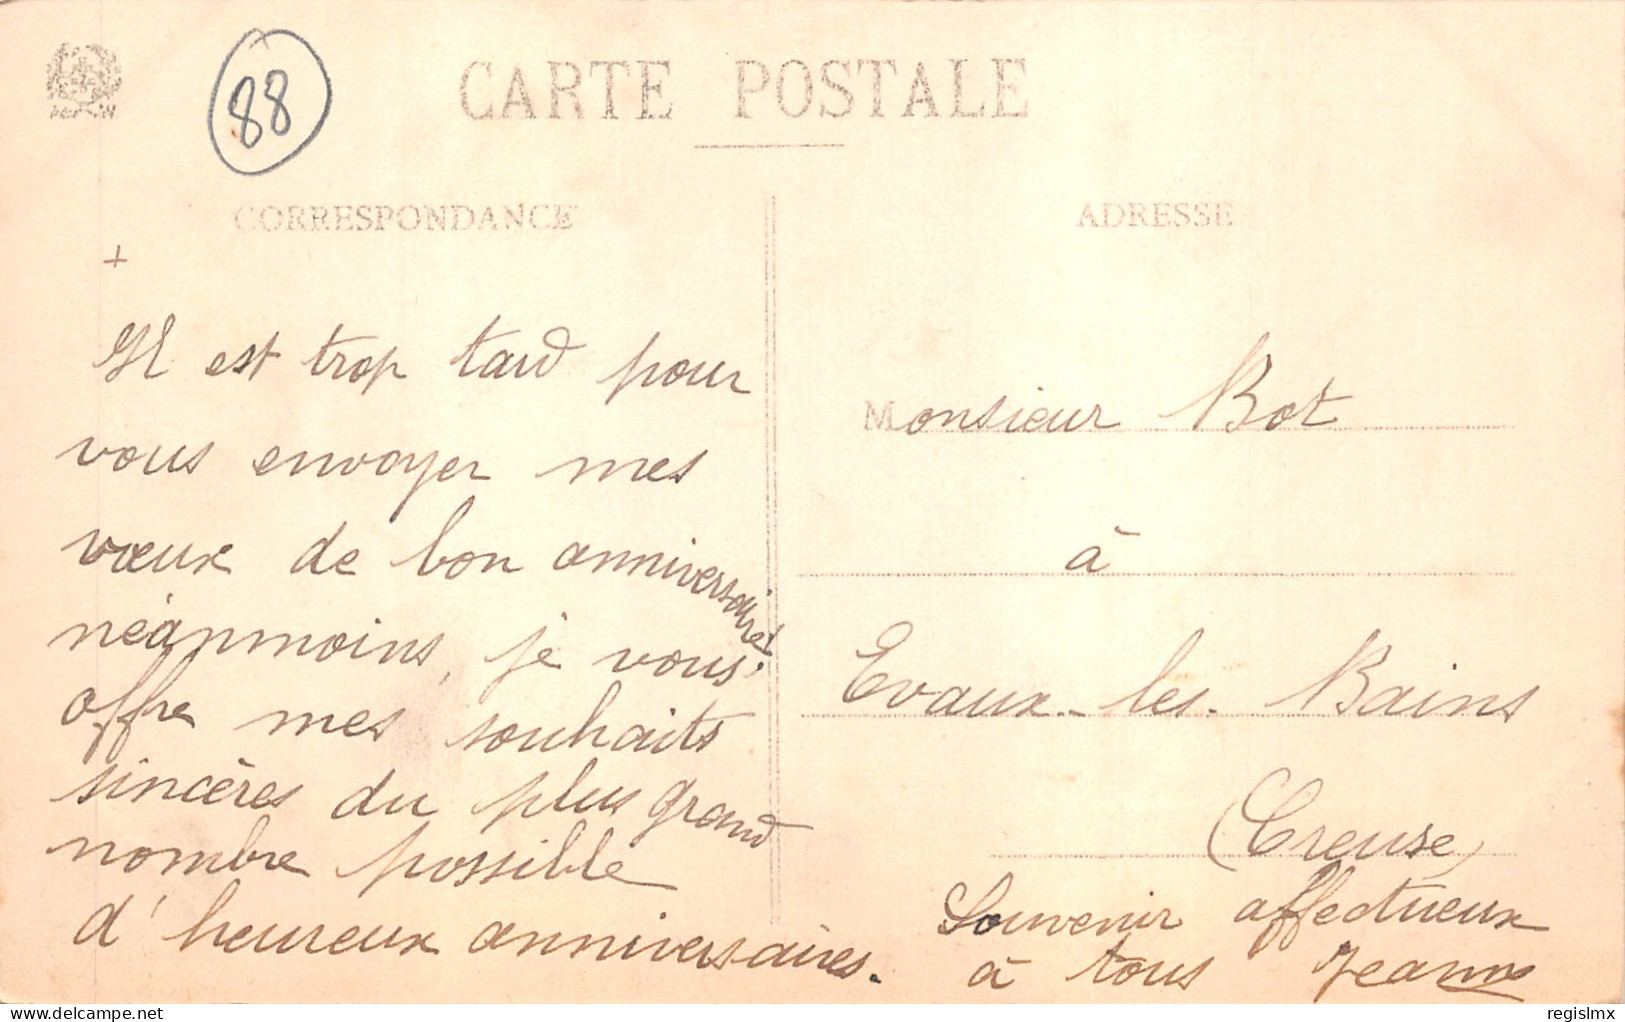 88
CARTE POSTALE
CORRESPONDANCE
Il est trop tard pour
vous envoyer mes
vœux de bon anniversaire!
néanmoins, je vous
offre mes souhaits
sincères du plus grand
nombre possible
d'heureux anniversaires.
ADRESSE
Monsieur Bot
à
Evaux-les-Bains
(Creuse)
Souvenir affectueux
à tous
delcampe.net
regislmx